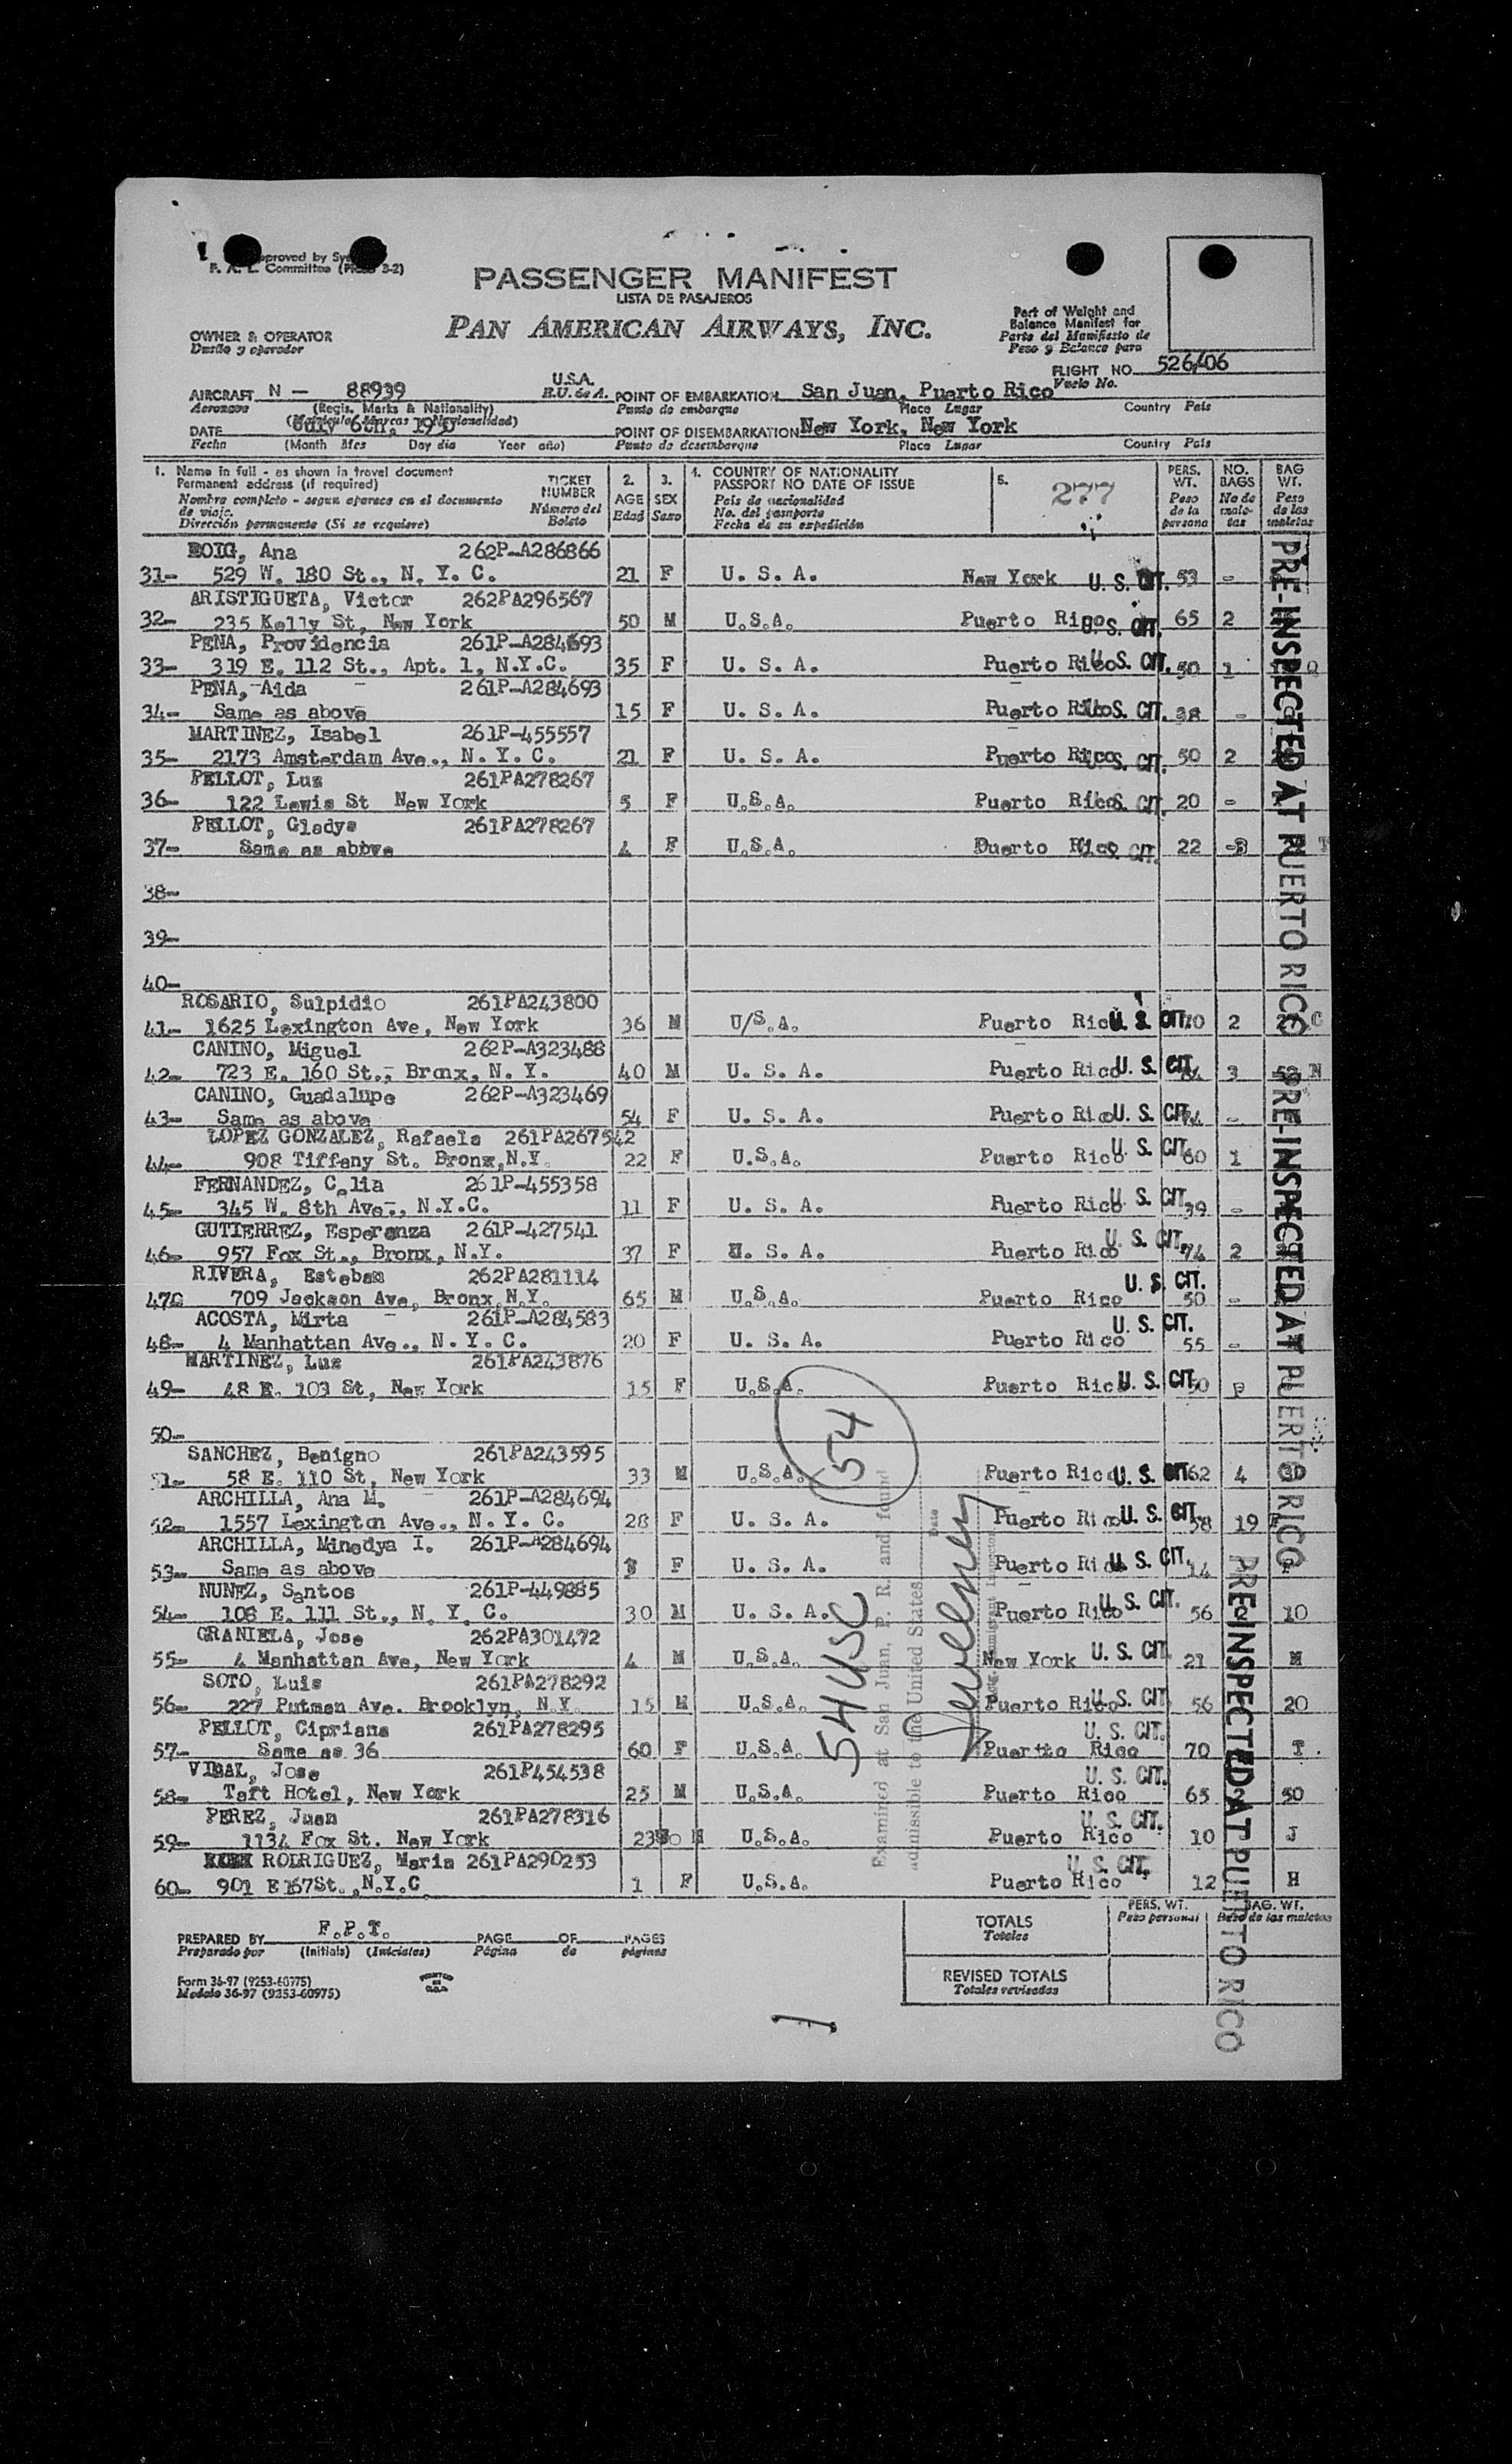 PASSENGER MANIFEST
LISTA DE PASAJEROS
PAN AMERICAN AIRWAYS, INC.
OWNER & OPERATOR
Dueño y operador
Part of Weight and
Balance Manifest for
Parte del Manifiesto de
Peso y Balance para
FLIGHT NO. 526/06
Vuelo No.
AIRCRAFT N - 88939 U.S.A. POINT OF EMBARKATION San Juan, Puerto Rico
Aeronave (Regis. Marks & Nationality) E.U. de A. Punto de embarque Place Lugar Country País
DATE July 6th, POINT OF DISEMBARKATION New York, New York
Fecha (Month Mes Day día Year año) Punto de desembarque Place Lugar Country País
1. Name in full - as shown in travel document
Permanent address (if required)
Nombre completo - segun aparece en el documento
de viaje.
Dirección permanente (Si se requiere)
TICKET NUMBER
Número del Boleto
2. AGE Edad
3. SEX Sexo
4. COUNTRY OF NATIONALITY
PASSPORT NO DATE OF ISSUE
País de nacionalidad
No. del pasaporte
Fecha de su expedición
5. 277
PERS. WT. Peso de la persona
NO. BAGS No de maletas
BAG WT. Peso de las maletas
ROIG, Ana 262P-A286866
31- 529 W. 180 St., N. Y. C. 21 F U. S. A. New York U. S. CIT. 53 -
ARISTIGUETA, Victor 262PA296567
32- 235 Kelly St, New York 50 M U.S.A. Puerto Rico U.S. CIT. 65 2
PENA, Providencia 261P-A284693
33- 319 E. 112 St., Apt. 1, N.Y.C. 35 F U. S. A. Puerto Rico U.S. CIT. 50 1
PENA, Aida 261P-A284693
34- Same as above 15 F U. S. A. Puerto Rico U.S. CIT. 38 -
MARTINEZ, Isabel 261P-455557
35- 2173 Amsterdam Ave., N. Y. C. 21 F U. S. A. Puerto Rico U.S. CIT. 50 2
PELLOT, Luz 261PA278267
36- 122 Lewis St New York 5 F U.S.A. Puerto Rico U.S. CIT. 20 -
PELLOT, Gladys 261PA278267
37- Same as abbve 4 F U.S.A. Puerto Rico CIT. 22 -3
38-
39-
40-
ROSARIO, Sulpidio 261PA243800
41- 1625 Lexington Ave, New York 36 M U/S.A. Puerto Rico U. S. CIT. 2
CANINO, Miguel 262P-A323488
42- 723 E. 160 St., Bronx, N. Y. 40 M U. S. A. Puerto Rico U. S. CIT. 3
CANINO, Guadalupe 262P-A323469
43- Same as above 54 F U. S. A. Puerto Rico U. S. CIT. -
LOPEZ GONZALEZ, Rafaela 261PA267542
44- 908 Tiffany St. Bronx, N.Y. 22 F U.S.A. Puerto Rico U. S. CIT. 60 1
FERNANDEZ, Celia 261P-455358
45- 345 W. 8th Ave., N.Y.C. 11 F U. S. A. Puerto Rico U. S. CIT. 39 -
GUTIERREZ, Esperanza 261P-427541
46- 957 Fox St., Bronx, N.Y. 37 F U. S. A. Puerto Rico U. S. CIT. 74 2
RIVERA, Esteban 262PA281114
47- 709 Jackson Ave, Bronx, N.Y. 65 M U.S.A. Puerto Rico U. S. CIT. 50 -
ACOSTA, Mirta 261P-A284583
48- 4 Manhattan Ave., N. Y. C. 20 F U. S. A. Puerto Rico U. S. CIT. 55 -
MARTINEZ, Luz 261PA243876
49- 48 E. 103 St, New York 15 F U.S.A. Puerto Rico U. S. CIT. 50
50-
SANCHEZ, Benigno 261PA243595
51- 58 E. 110 St, New York 33 M U.S.A. Puerto Rico U. S. CIT. 62 4
ARCHILLA, Ana M. 261P-A284694
52- 1557 Lexington Ave., N. Y. C. 28 F U. S. A. Puerto Rico U. S. CIT. 58 19
ARCHILLA, Minedya I. 261P-A284694
53- Same as above F U. S. A. Puerto Rico U. S. CIT. 14
NUNEZ, Santos 261P-449885
54- 108 E. 111 St., N. Y. C. 30 M U. S. A. Puerto Rico U. S. CIT. 56 10
GRANIELA, Jose 262PA301472
55- 4 Manhattan Ave, New York 4 M U.S.A. New York U. S. CIT. 21 M
SOTO, Luis 261PA278292
56- 227 Putman Ave. Brooklyn, N.Y. 15 M U.S.A. Puerto Rico U. S. CIT. 56 20
PELLOT, Cipriana 261PA278295
57- Same as 36 60 F U.S.A. Puerto Rico U. S. CIT. 70 T
VIDAL, Jose 261P454538
58- Taft Hotel, New York 25 M U.S.A. Puerto Rico U. S. CIT. 65 50
PEREZ, Juan 261PA278316
59- 1134 Fox St. New York U.S.A. Puerto Rico U. S. CIT. 10 J
RODRIGUEZ, Maria 261PA290253
60- 901 E167St., N.Y.C 1 F U.S.A. Puerto Rico U. S. CIT. 12 H
PRE-INSPECTED AT PUERTO RICO
PRE-INSPECTED AT PUERTO RICO
PRE-INSPECTED AT PUERTO RICO
54
54 USC
Examined at San Juan, P. R. and found
admissible to the United States
Date
Immigrant Inspector
PREPARED BY F.P.T. PAGE OF PAGES
Preparado por (Initials) (Iniciales) Página de páginas
TOTALS
Totales
PERS. WT.
Peso personal
BAG. WT.
Peso de las maletas
REVISED TOTALS
Totales revisados
Form 36-97 (9253-60975)
Modelo 36-97 (9253-60975)
PRINTED IN U.S.A.